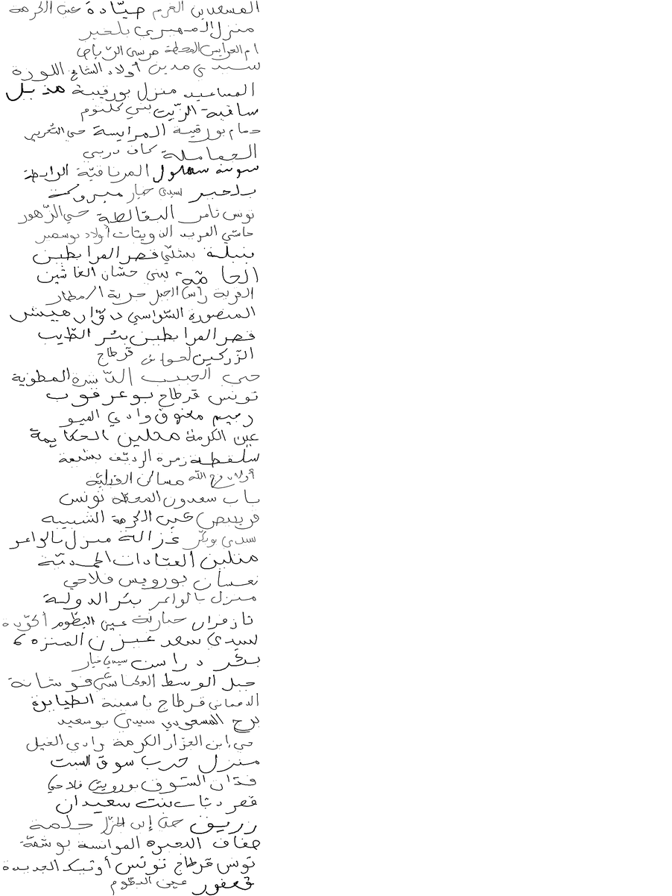 المسعدين القرم صيّادة عين الكرمة
منزل المهيري بلخير
ام العرايس المحطة مرسى الرياض
سيدي مدين أولاد الشامخ اللوزة
المساعيد منزل بورقيبة هذيل
ساقية الزيت بني كلثوم
حمام بورقيبة المرايسة حي التحرير
العماملة كاف دربي
سوسة سهلول المرناقيّة الرابطة
بلخير سيدي خيار مبروكة
تونس ناس البقالطة حي الزهور
حامي الفريد الذويتات أولاد بوسمير
بنبلة قصر المرابطين
الحامّة بني حسّان الغاشين
القرية رأس الجبل حرية
المنصورة السّواسي دوّار هيشر
قصر المرابطين بئر الطيب
الزركين لحواش قرطاج
حي الحبيب المطوية
تونس قرطاج بوعرقوب
رجيم معتوق وادي
عين الكرمة محلين الحكايمة
سلقطة زمرة الرديف بشيمة
أولاد فرج الله مساكن القبلية
باب سعدون المحطة تونس
قريص عين الكرمة الشبيبة
سيدي بوبكر غزالة منزل بالواعر
منلين العتادات الحمدية
نعسان بورويس فلاحي
منزل بالواعر بئر الدولة
تازغران عين البطوم أكودة
سيدي سعد المنزه 6
بكر دراسن سيدي خيار
جبل الوسط العكاشي فوشانة
الدهماني قرطاج ياسمينة الطيايرة
برج المسعودي سيدي بوسعيد
حي إبن الجزار الكرمة وادي الغيل
منزل حرب سوق السبت
فدّان السوق بورويس فلاحي
قصر بنت سعيدان
زريق حي إبن الجزار حلمة
جفاف الدهيرة الموانسة بوشقة
تونس قرطاج تونس أوتيك الجديدة
قعفور عين البطوم